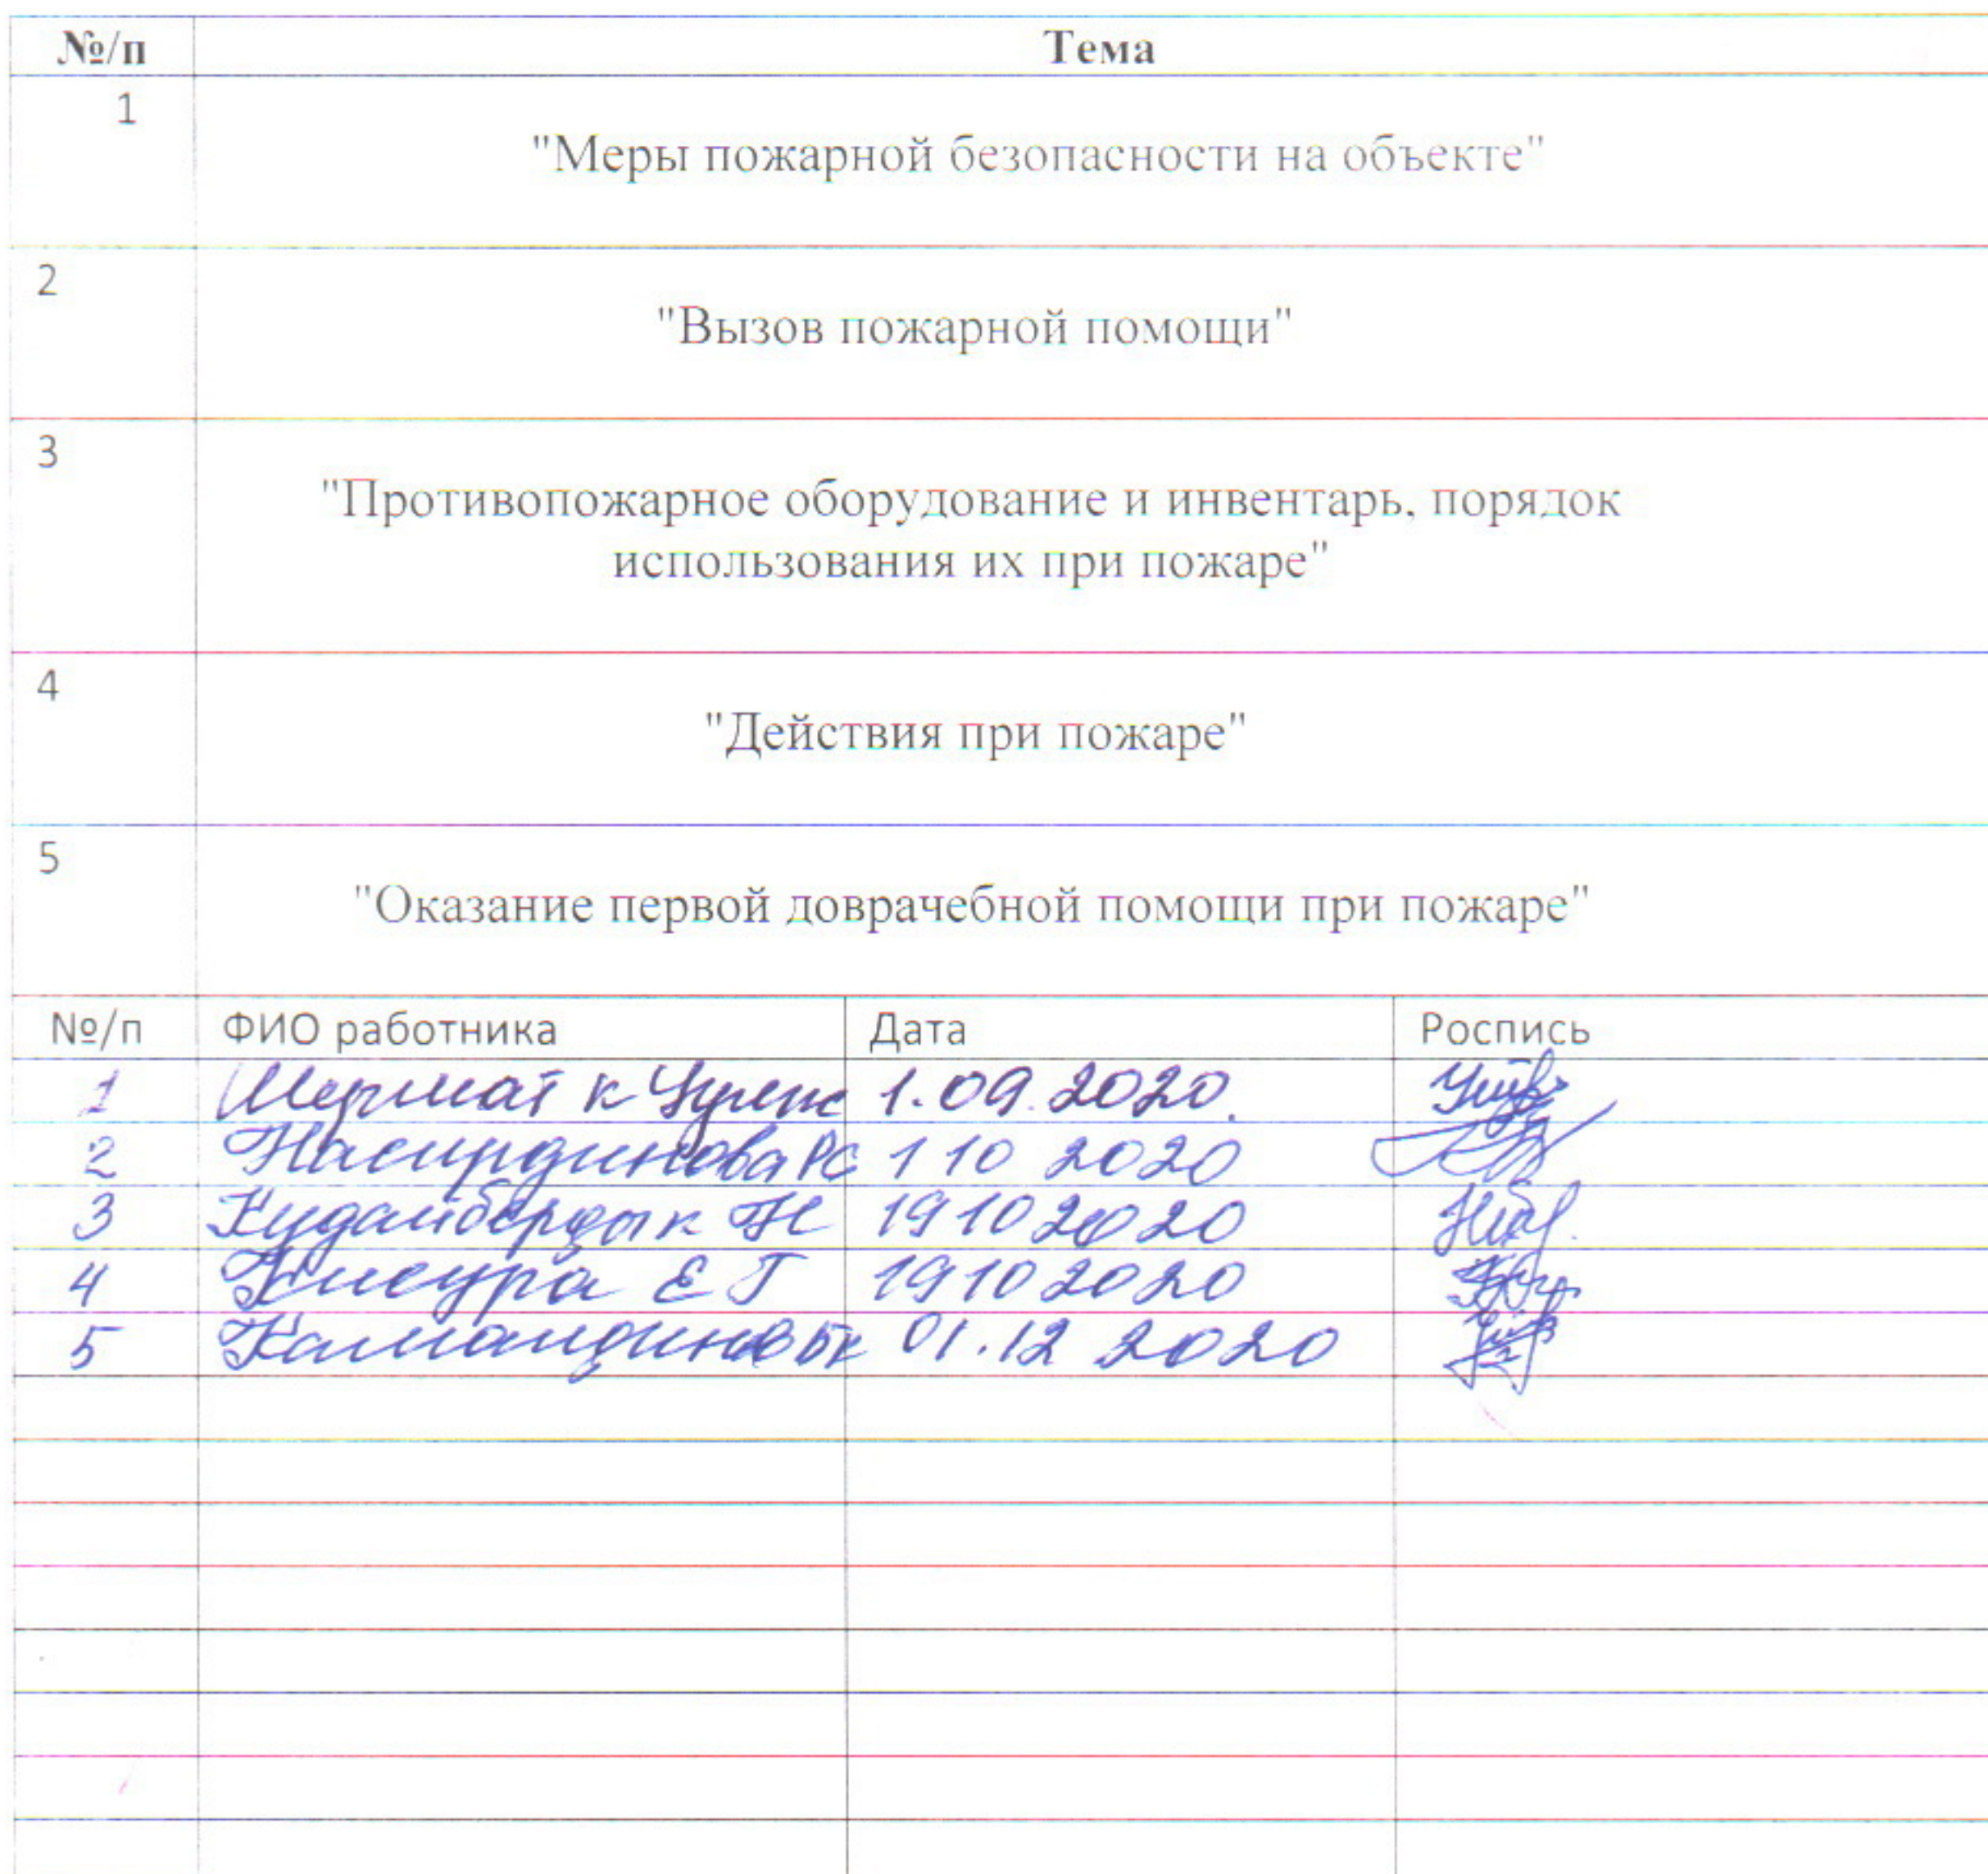 №/п Тема
1
"Меры пожарной безопасности на объекте"
2
"Вызов пожарной помощи"
3
"Противопожарное оборудование и инвентарь, порядок
использования их при пожаре"
4
"Действия при пожаре"
5
"Оказание первой доврачебной помощи при пожаре"
№/п ФИО работника Дата Роспись
1 к 1.09.2020.
2 Насирдинова РС 1 10 2020
3 19 10 2020
4 Е Г 19 10 2020
5 01.12 2020